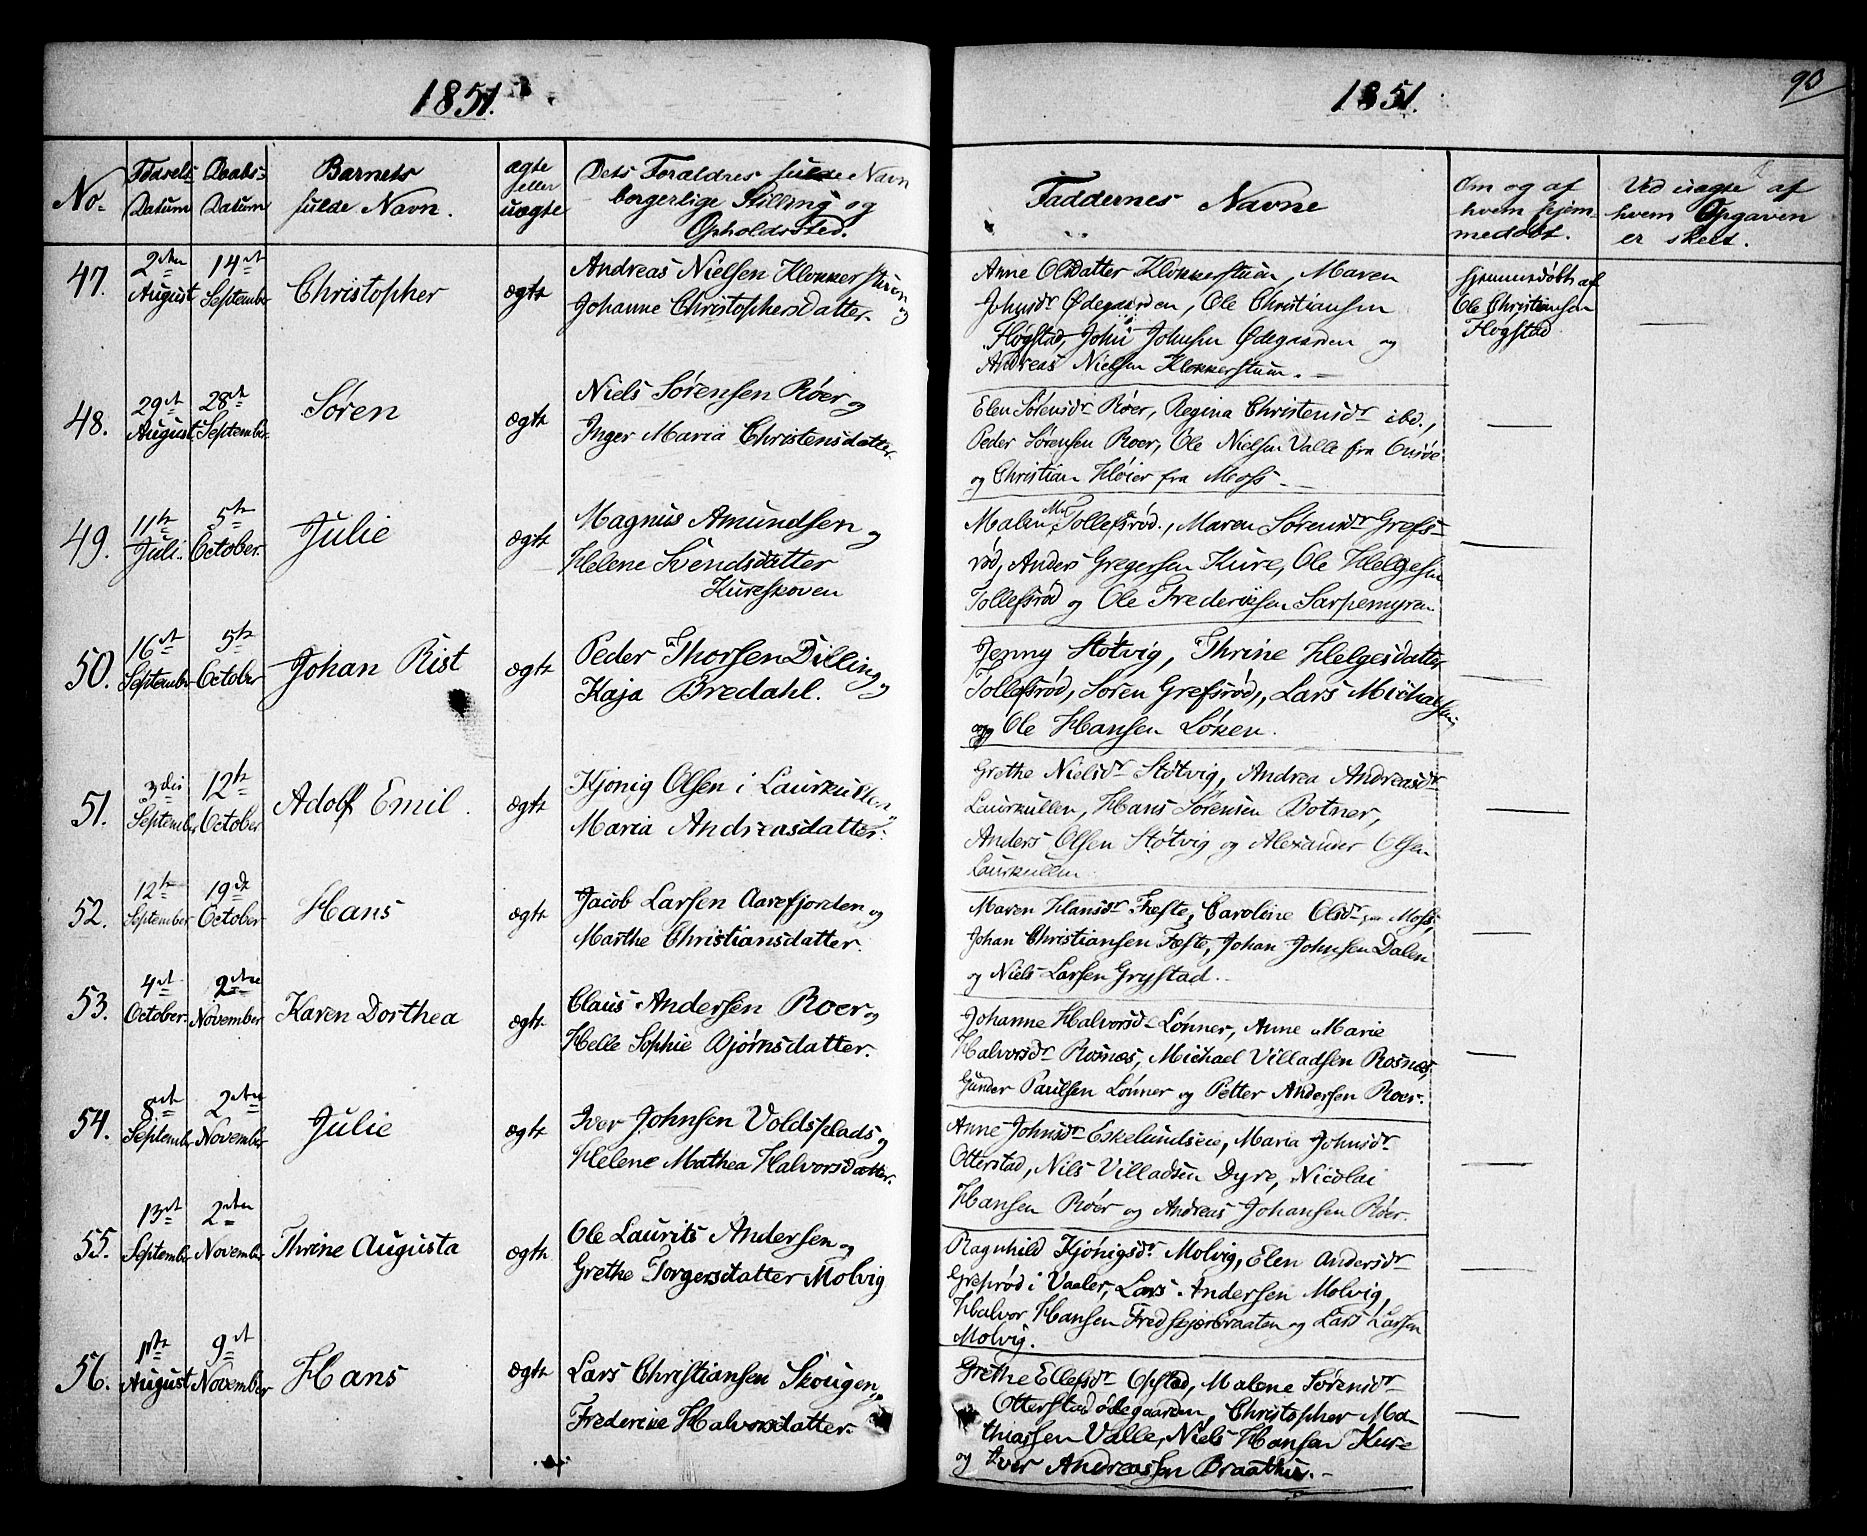 1851.
1851.
90
No.
Fødsels-
Datum
Daabs-
Datum
Barnets
fulde Navn.
ægte
eller
uægte
Dets Forældres fulde Navn
borgerlige Stilling og
Opholdssted.
Faddernes Navne
Om og af
hvem hjem-
medøbt.
Ved uægte af
hvem Opgaven
er skeet.
47.
2den
August
14de
September
Christopher
ægte
Andreas Nielsen Klokkerstuen og
Johanne Christophersdatter.
Anne Olsdatter Klokkerstuen, Maren
Johnsdr Ødegaarden, Ole Christiansen
Flogstad, John Johnsen Ødegaarden og
Andreas Nielsen Klokkerstuen.
hjemmedøbt af
Ole Christiansen
Flogstad
48.
29de
August
28de
September
Søren
ægte
Niels Sørensen Röer og
Inger Maria Christensdatter.
Elen Sørensdr Röer, Regina Christensdr ibd.,
Peder Sørensen Roer, Ole Nielsen Valle fra Onsöe
og Christian Kløier fra Moss.
49.
11te
Juli.
5te
October.
Julie
ægte
Magnus Amundsen og
Helene Svendsdatter
Kureskoven
Malen Tollefsrød., Maren Sørensdr Grefs-
rød, Anders Gregersen Kure, Ole Helgesen
Tollefsrød og Ole Frederiksen Sarpemyren
50.
16de
September
5te
October
Johan Rist
ægte
Peder Thorsen Dilling og
Kaja Bredahl.
Jenny Støtvig, Thrine Helgesdatter
Tollefsrød, Søren Grefsrød, Lars Michaelsen
og Ole Hansen Løken.
51.
3die
September
12te
October
Adolf Emil.
ægte
Kjönig Olsen i Laurkullen,
Maria Andreasdatter.
Grethe Nielsdr Støtvig, Andrea Andreasdr
Laurkullen, Hans Sørensen Botner,
Anders Olsen Støtvig og Alexander Olsen
Laurkullen
52.
12te
September
19de
October
Hans
ægte
Jacob Larsen Aarefjorden og
Marthe Christiansdatter.
Maren Hansdr Feste, Caroline Olsdr fra Moss,
Johan Christiansen Feste, Johan Johnsen Dalen
og Niels Larsen Grystad.
53.
4de
October.
2den
November
Karen Dorthea
ægte
Claus Andersen Roer og
Helle Sophie Bjørnsdatter.
Johanne Halvorsdr Lønner, Anne Marie
Halvorsdr Rosnæs, Michael Villadsen Rosnæs,
Gunder Paulsen Lönner og Petter Andersen Roer.
54.
8de
September
2den
November
Julie
ægte
Iver Johnsen Voldsplads og
Helene Mathea Halvorsdatter.
Anne Johnsdr Eskelundseie, Maria Johnsdr
Otterstad, Nils Villadsen Dyre, Nicolai
Hansen Röer og Andreas Johansen Röer.
55.
13de
September
2den
November
Thrine Augusta
ægte
Ole Laurits Andersen og
Grethe Torgersdatter Molvig
Ragnhild Kjönigsdr Molvig, Elen Andersdr
Grefsrød i Vaaler, Lars Andersen Molvig,
Halvor Hansen Fredskjærbraaten og Lars Larsen
Molvig.
56.
1ste
August
9de
November
Hans
ægte
Lars Christiansen Skougen,
Frederine Halvorsdatter.
Grethe Ellefsdr Opstad, Malene Sørensdr
Otterstadødegaarden, Christopher Ma-
thiassen Valle, Niels Hansen Kure
og Iver Andreassen Braathen.